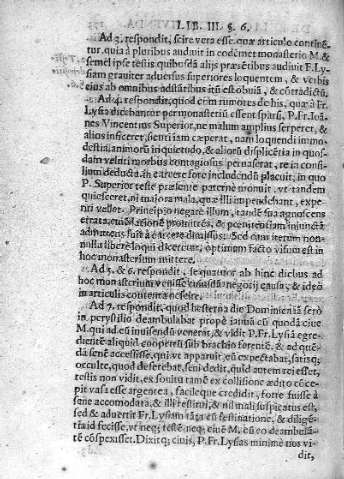 LIB. III. §. 6.
Ad 3. respondit, scire vera esse, quæ articulo continẽ-
tur, quia à pluribus audiuit in eodẽmet monasterio M. &
semel ipse testis quibusdã alijs præsẽtibus audiuit F. Ly-
siam grauiter aduersus superiores loquentem, & verbis
eius ab omnibus adstãtibus itũ est obuiã, & cõtradictũ.
Ad. 4. respondit, quod cum rumores de his, quæ à Fr.
Lysia dicebantur per monasteriũ essent sparsi, P. Fr. Ioã-
nes Vincentius Superior, ne malum amplius serperet, &
alios inficeret, am loquendi immo-
destia, animorũ inquietudo, & aliorũ displicẽtia in quos-
dam veluti morbus contagiosus peruaserat, re in consi-
lium deducta, placuit, in quo
P. Superior teste præsente paternè monuit, vt tandem
quiesceret, ni maiora mala, quæ illi impendebant, expe-
riri vellet. Principiò negare illum, tandẽ sua agnoscens
errata, & pœnitentiam iniunctã
Sed cum iterum non-
nulla liberè loqui diceretur, optimum factu visum est in
hoc monasterium mittere.
Ad 5. & 6. respondit, se quatuor ab hinc diebus ad
hoc monasterium venisse negotij causa, & ideò
in articulis contenta nescire.
Ad 7. respondit, quod hesterna die Dominica serò
in perystilio deambulabat propè ianuã cũ quodã ciue
M. qui ad eũ inuisendũ venerat, & vidit P. Fr. Lysiã egre-
dientẽ aliquid coopertũ sub brachio ferentẽ, & ad quẽ-
dã senẽ accessisse, qui vt apparuit, eũ expectabat, satisq;
occulte, quod deferebat, seni dedit, quid autem rei esset,
testis non vidit, ex sonitu tamẽ ex collisione ædito cõce-
pit vasa esse argentea, facileque credidit, fortè fuisse à
sene accomodata, & illi restitui, & nil mali suspicatus est,
sed & aduertit Fr. Lysiam rã ea festinatione, & diligẽ-
tia id fecisse, vt neq; teste, neq; ciuẽ M. cũ eo deambulã-
tẽ cõspexisset. Dixitq; ciuis, P. Fr. Lysias minimè nos vi-
dit,